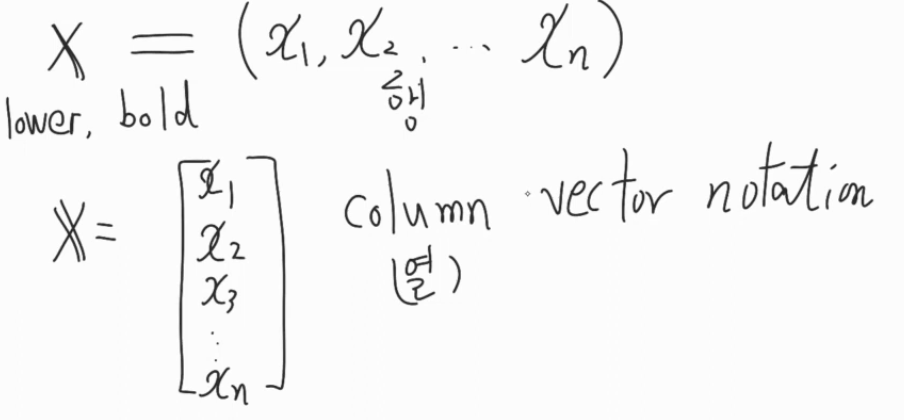 x = (x₁, x₂, ... xₙ)
행
lower, bold
x = [x₁
x₂
x₃
⋮
xₙ] column vector notation
(열)